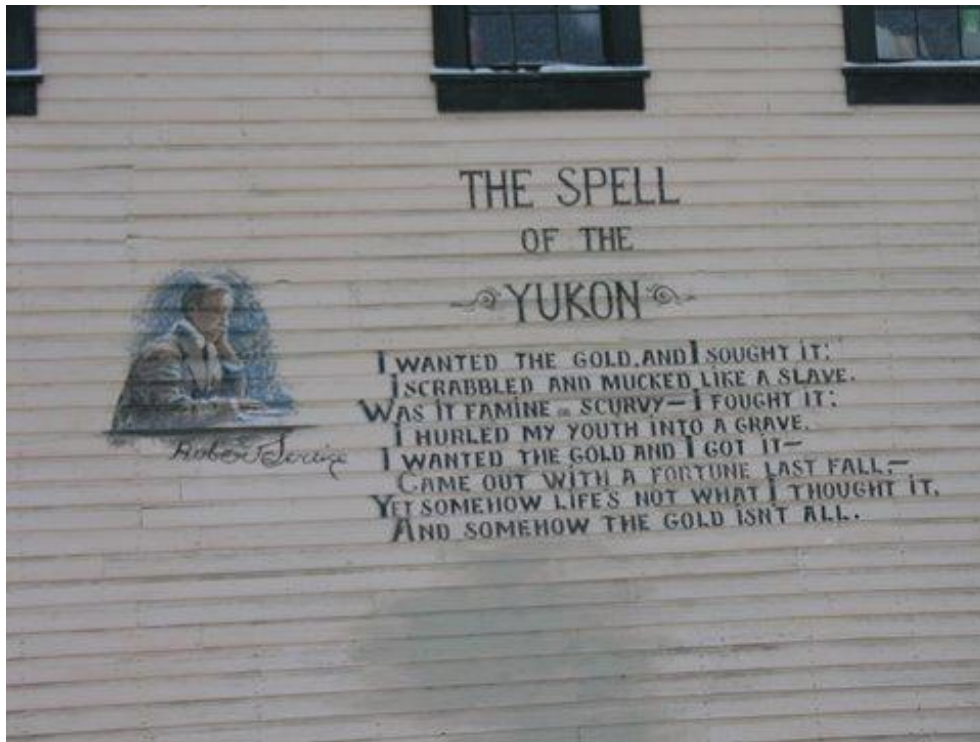 THE SPELL
OF THE
YUKON
I WANTED THE GOLD, AND I SOUGHT IT;
I SCRABBLED AND MUCKED LIKE A SLAVE.
WAS IT FAMINE OR SCURVY— I FOUGHT IT;
I HURLED MY YOUTH INTO A GRAVE.
I WANTED THE GOLD AND I GOT IT—
CAME OUT WITH A FORTUNE LAST FALL,—
YET SOMEHOW LIFE'S NOT WHAT I THOUGHT IT,
AND SOMEHOW THE GOLD ISN'T ALL.
Robert Service